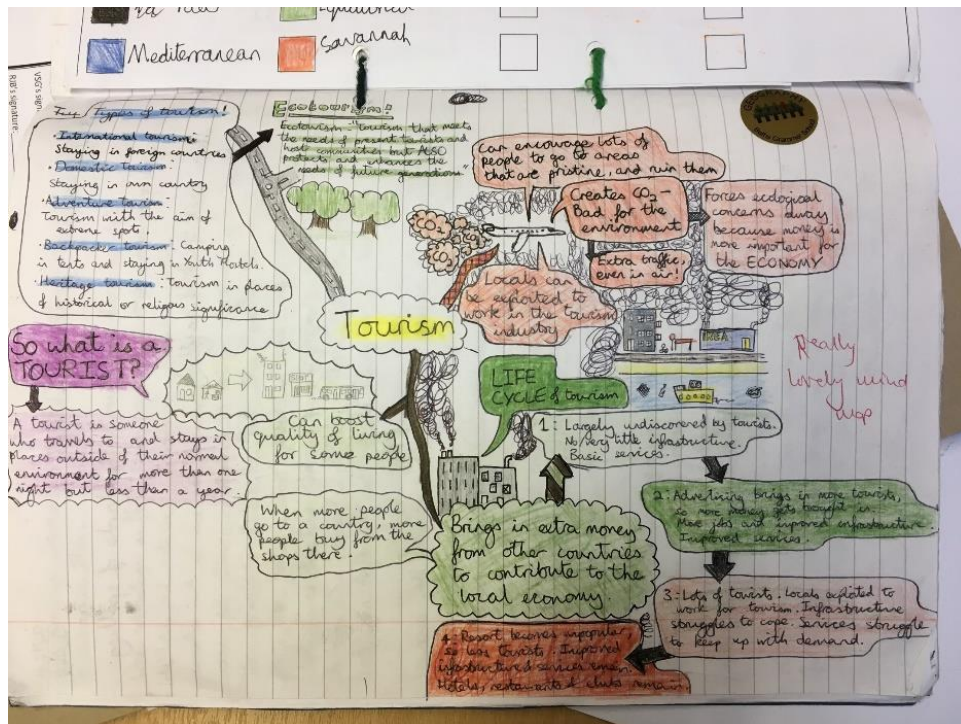 Mediterranean
Savannah
VSG's sign
RJB's signature
Types of tourism!
• International tourism:
Staying in foreign countries
• Domestic Tourism:
Staying in own country
• Adventure tourism:
Tourism with the aim of
extreme spot.
• Backpacker tourism: Camping
in tents and staying in Youth Hostels.
• Heritage tourism: Tourism in places
of historical or religous significance
Ecotourism!
Ecotourism: "Tourism that meets
the needs of present tourists and
host communities but ALSO
protects and enhances the
needs of future generations"
Can encourage lots of
people to go to areas
that are pristine, and ruin them
Creates CO2 -
Bad for the
environment
Forces ecological
concerns away
because money is
more important for
the ECONOMY
Extra traffic,
even in air!
Locals can
be exploited to
work in the tourism
industry
Tourism
IKEA
Really
lovely mind
map
So what is a
TOURIST?
A tourist is someone
who travels to and stays in
places outside of their normal
environment for more than one
night but less than a year.
Can boost
quality of living
for some people
When more people
go to a country, more
people buy from the
shops there.
Brings in extra money
from other countries
to contribute to the
local economy.
LIFE
CYCLE of tourism
1: Largely undiscovered by tourists.
No/very little infrastructure.
Basic services.
2: Advertising brings in more tourists,
so more money gets brought in.
More jobs and improved infrastructure.
Improved services.
3: Lots of tourists. Locals exploited to
work for tourism. Infrastructure
struggles to cope. Services struggle
to keep up with demand.
4: Resort becomes unpopular
so less tourists. Improved
infrastructure & services remain
Hotels, restaurants & clubs remain.